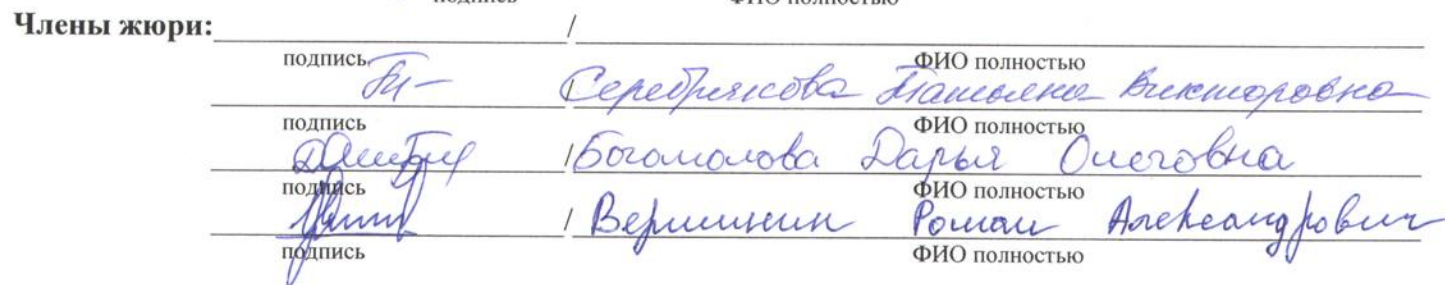 подпись ФИО полностью
Члены жюри: /
подпись ФИО полностью
/ Серебрякова Татьяна Викторовна
подпись ФИО полностью
/ Богомолова Дарья Олеговна
подпись ФИО полностью
/ Вершинин Роман Александрович
подпись ФИО полностью